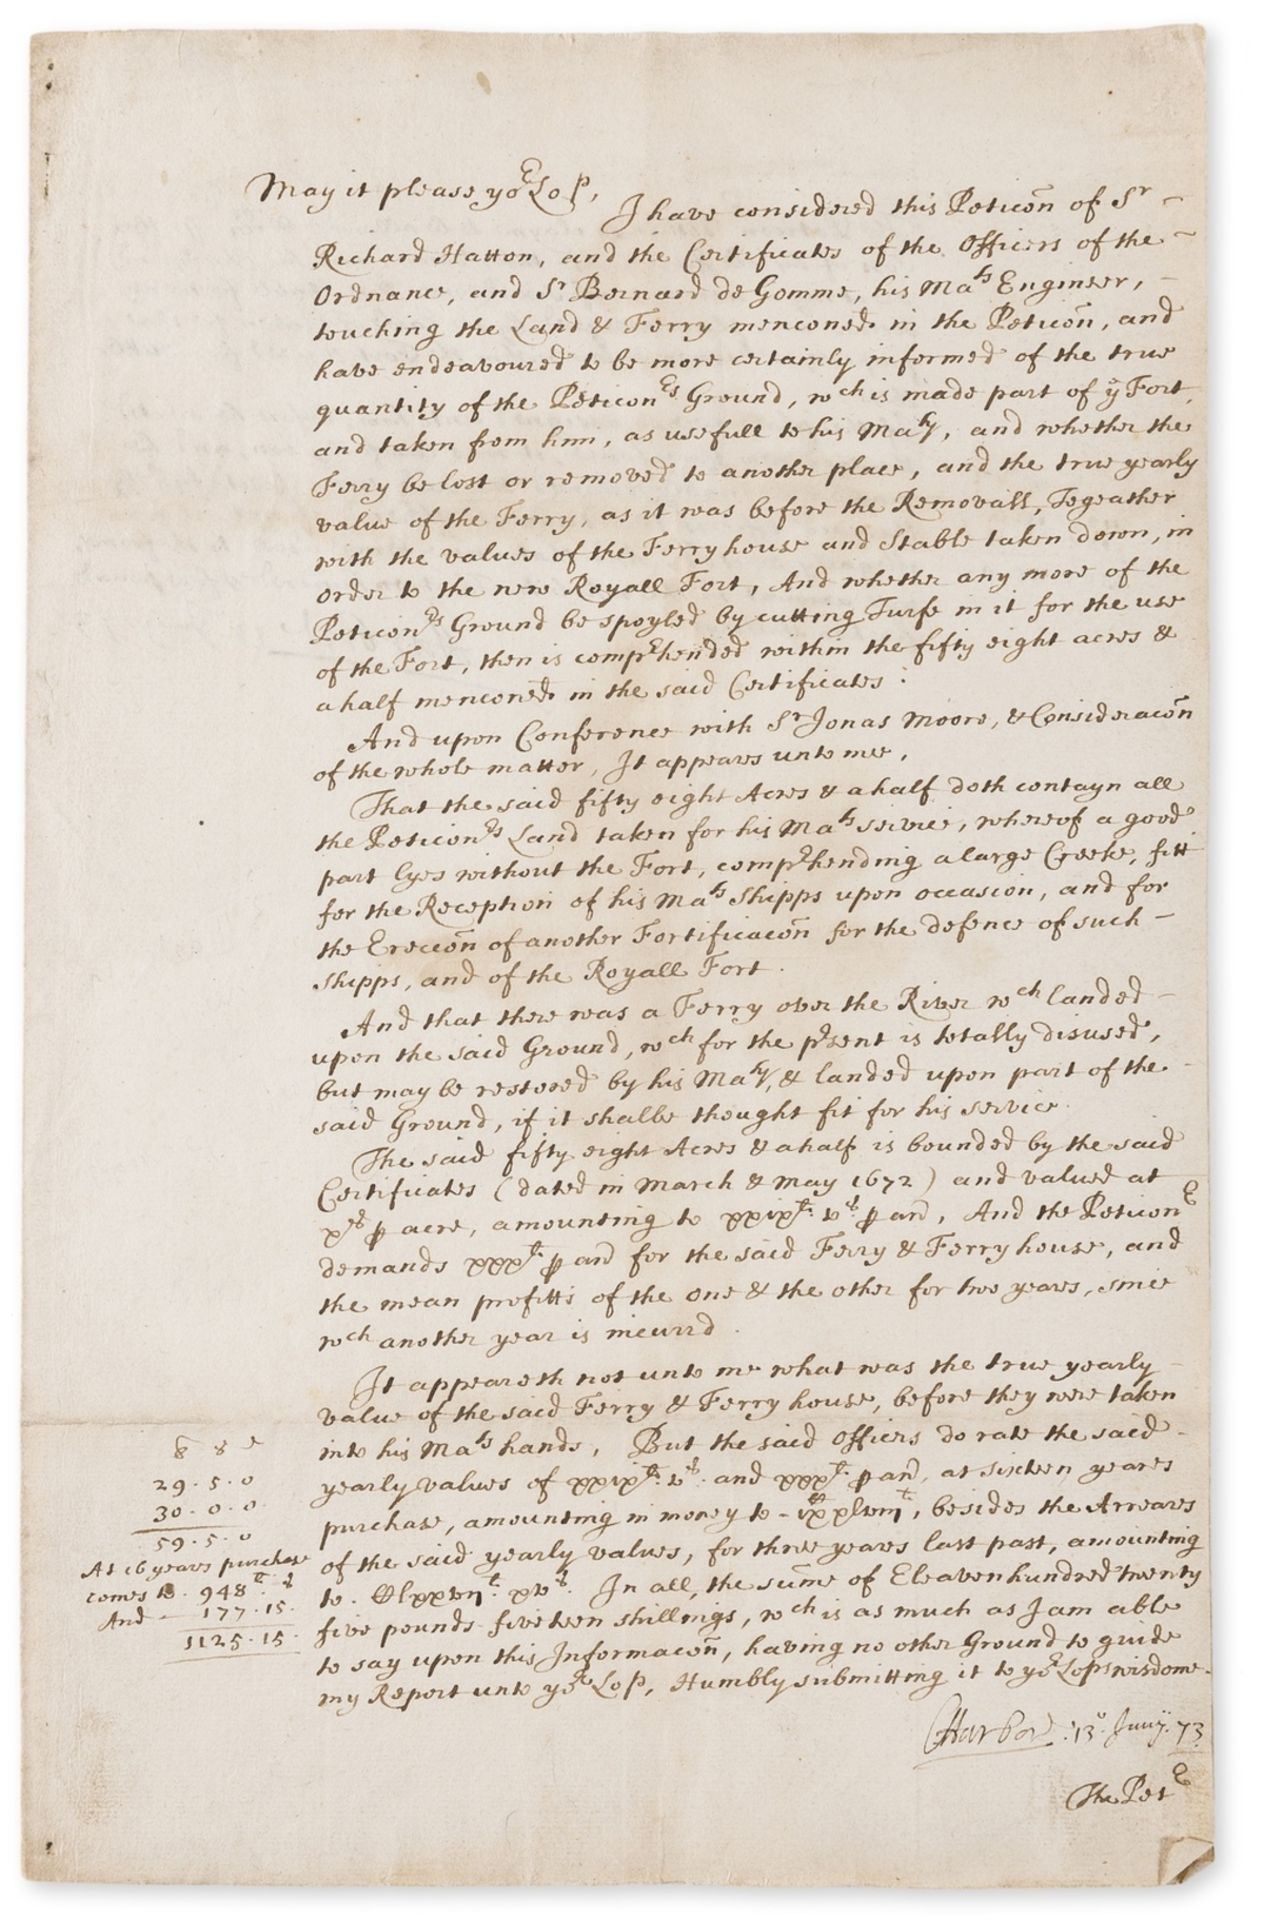 May it please yor Lop,
I have considered this Peticōn of Sr
Richard Hatton, and the Certificates of the Officers of the
Ordnance, and Sr Bernard de Gomme, his Mats Engineer,
touching the Land & Ferry menconed in the Peticōn, and
have endeavoured to be more certainly informed of the true
quantity of the Peticonrs Ground, wch is made part of ye Fort,
and taken from him, as usefull to his Maty, and whether the
Ferry be lost or removed to another place, and the true yearly
value of the Ferry, as it was before the Removall, Togeather
with the values of the Ferryhouse and Stable taken down, in
order to the new Royall Fort, And whether any more of the
Peticonrs Ground be spoyled by cutting Turfe in it for the use
of the Fort, then is comprehended within the fifty eight acres &
a half menconed in the said Certificates:
And upon Conference with Sr Jonas Moore, & Consideracōn
of the whole matter, It appeares unto mee,
That the said fifty eight Acres & a half doth contayn all
the Peticonrs Land taken for his Mats service, whereof a good
part lyes without the Fort, comprehending a large Creeke, fitt
for the Reception of his Mats Shipps upon occasion, and for
the Ereccōn of another Fortificacōn for the defence of such
Shipps, and of the Royall Fort.
And that there was a Ferry over the River wch landed
upon the said Ground, wch for the prsent is totally disused,
but may be restored by his Maty, & landed upon part of the
said Ground, if it shalbe thought fit for his service.
The said fifty eight Acres & a half is bounded by the said
Certificates (dated in March & May 1672) and valued at
xs p acre, amounting to xxixl: vs p ann, And the Peticonr
demands xxxl: p ann for the said Ferry & Ferryhouse, and
the mean profitts of the one & the other for two yeares, since
wch another year is incurrd.
It appeareth not unto me what was the true yearly
value of the said Ferry & Ferryhouse, before they were taken
into his Mats hands, But the said Officers do rate the said
yearly values of xxixl: vs. and xxxl: p ann, at sixteen yeares
purchase, amounting in money to ixc xlviijl, besides the Arreares
of the said yearly values, for three yeares last past, amounting
to. Clxxvijl: xvs. In all, the sum̄e of Eleaven hundred twenty
five pounds fiveteen shillings, wch is as much as I am able
to say upon this Informacōn, having no other Ground to guide
my Report unto yor Lop, Humbly submitting it to yor Lops wisdome.
29.5.0
30.0.0
59.5.0
At 16 yeares purchase
comes to. 948l: s
And 177.15.
1125.15.
CHarbord .13o. Junij. 73
The Petr